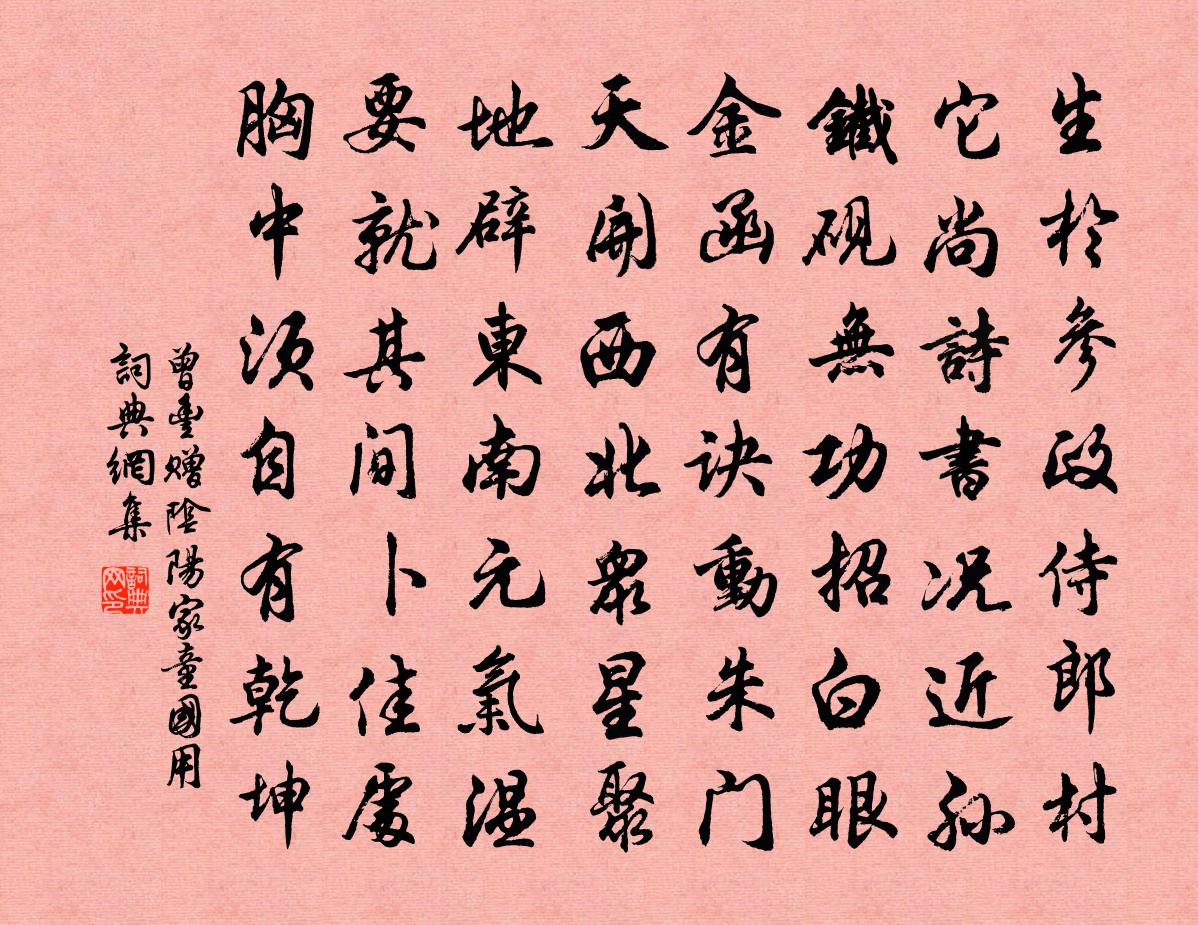 生於參政侍郎村
它尚詩書況近孫
鐵硯無功招白眼
金函有訣動朱门
天開西北眾星聚
地辟東南元氣溫
要就其間卜佳處
胸中須自有乾坤
曾豐贈陰陽家童國用
詞典網集
詞典网印